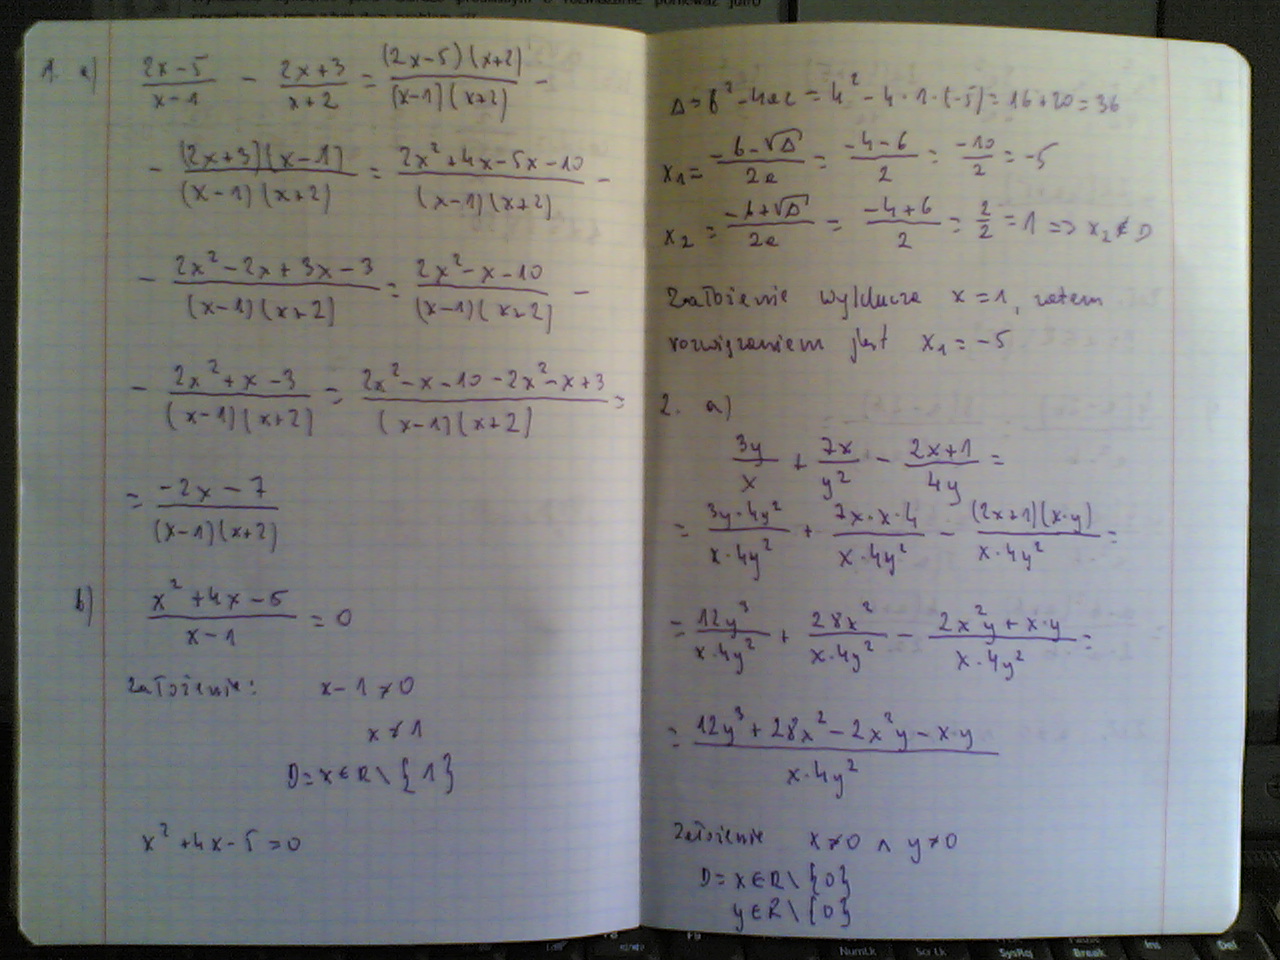 1. a) (2x-5)/(x-1) - (2x+3)/(x+2) = ((2x-5)(x+2))/((x-1)(x+2)) -
- ((2x+3)(x-1))/((x-1)(x+2)) = (2x²+4x-5x-10)/((x-1)(x+2)) -
- (2x²-2x+3x-3)/((x-1)(x+2)) = (2x²-x-10)/((x-1)(x+2)) -
- (2x²+x-3)/((x-1)(x+2)) = (2x²-x-10-2x²-x+3)/((x-1)(x+2)) =
= (-2x-7)/((x-1)(x+2))
b) (x²+4x-5)/(x-1) = 0
Założenie: x-1≠0
x≠1
D=x∈R\{1}
x²+4x-5=0
Δ=b²-4ac=4²-4·1·(-5)=16+20=36
x₁=(-b-√Δ)/2a = (-4-6)/2 = -10/2 = -5
x₂=(-b+√Δ)/2a = (-4+6)/2 = 2/2 = 1 => x₂∉D
Założenie wyklucza x=1, zatem
rozwiązaniem jest x₁=-5
2. a)
3y/x + 7x/y² - (2x+1)/4y =
= (3y·4y²)/(x·4y²) + (7x·x·4)/(x·4y²) - ((2x+1)(x·y))/(x·4y²) =
= 12y³/(x·4y²) + 28x²/(x·4y²) - (2x²y+x·y)/(x·4y²) =
= (12y³+28x²-2x²y-x·y)/(x·4y²)
Założenie x≠0 ∧ y≠0
D=x∈R\{0}
y∈R\{0}
NumLk
ScrLk
SysRq
Break
Ins
Del